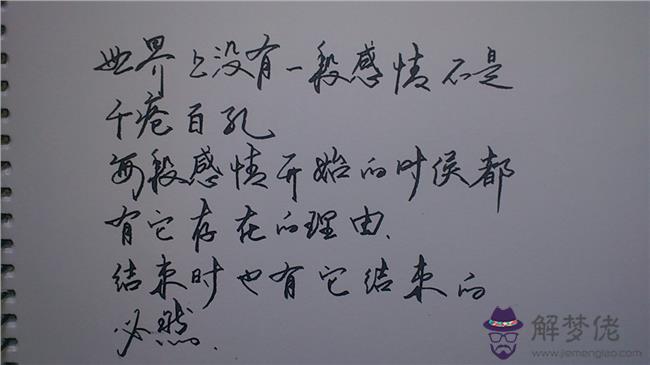 世界上没有一段感情不是
千疮百孔
每段感情开始的时侯都
有它存在的理由.
结束时也有它结束的
必然.
解梦佬
www.jiemenglao.com